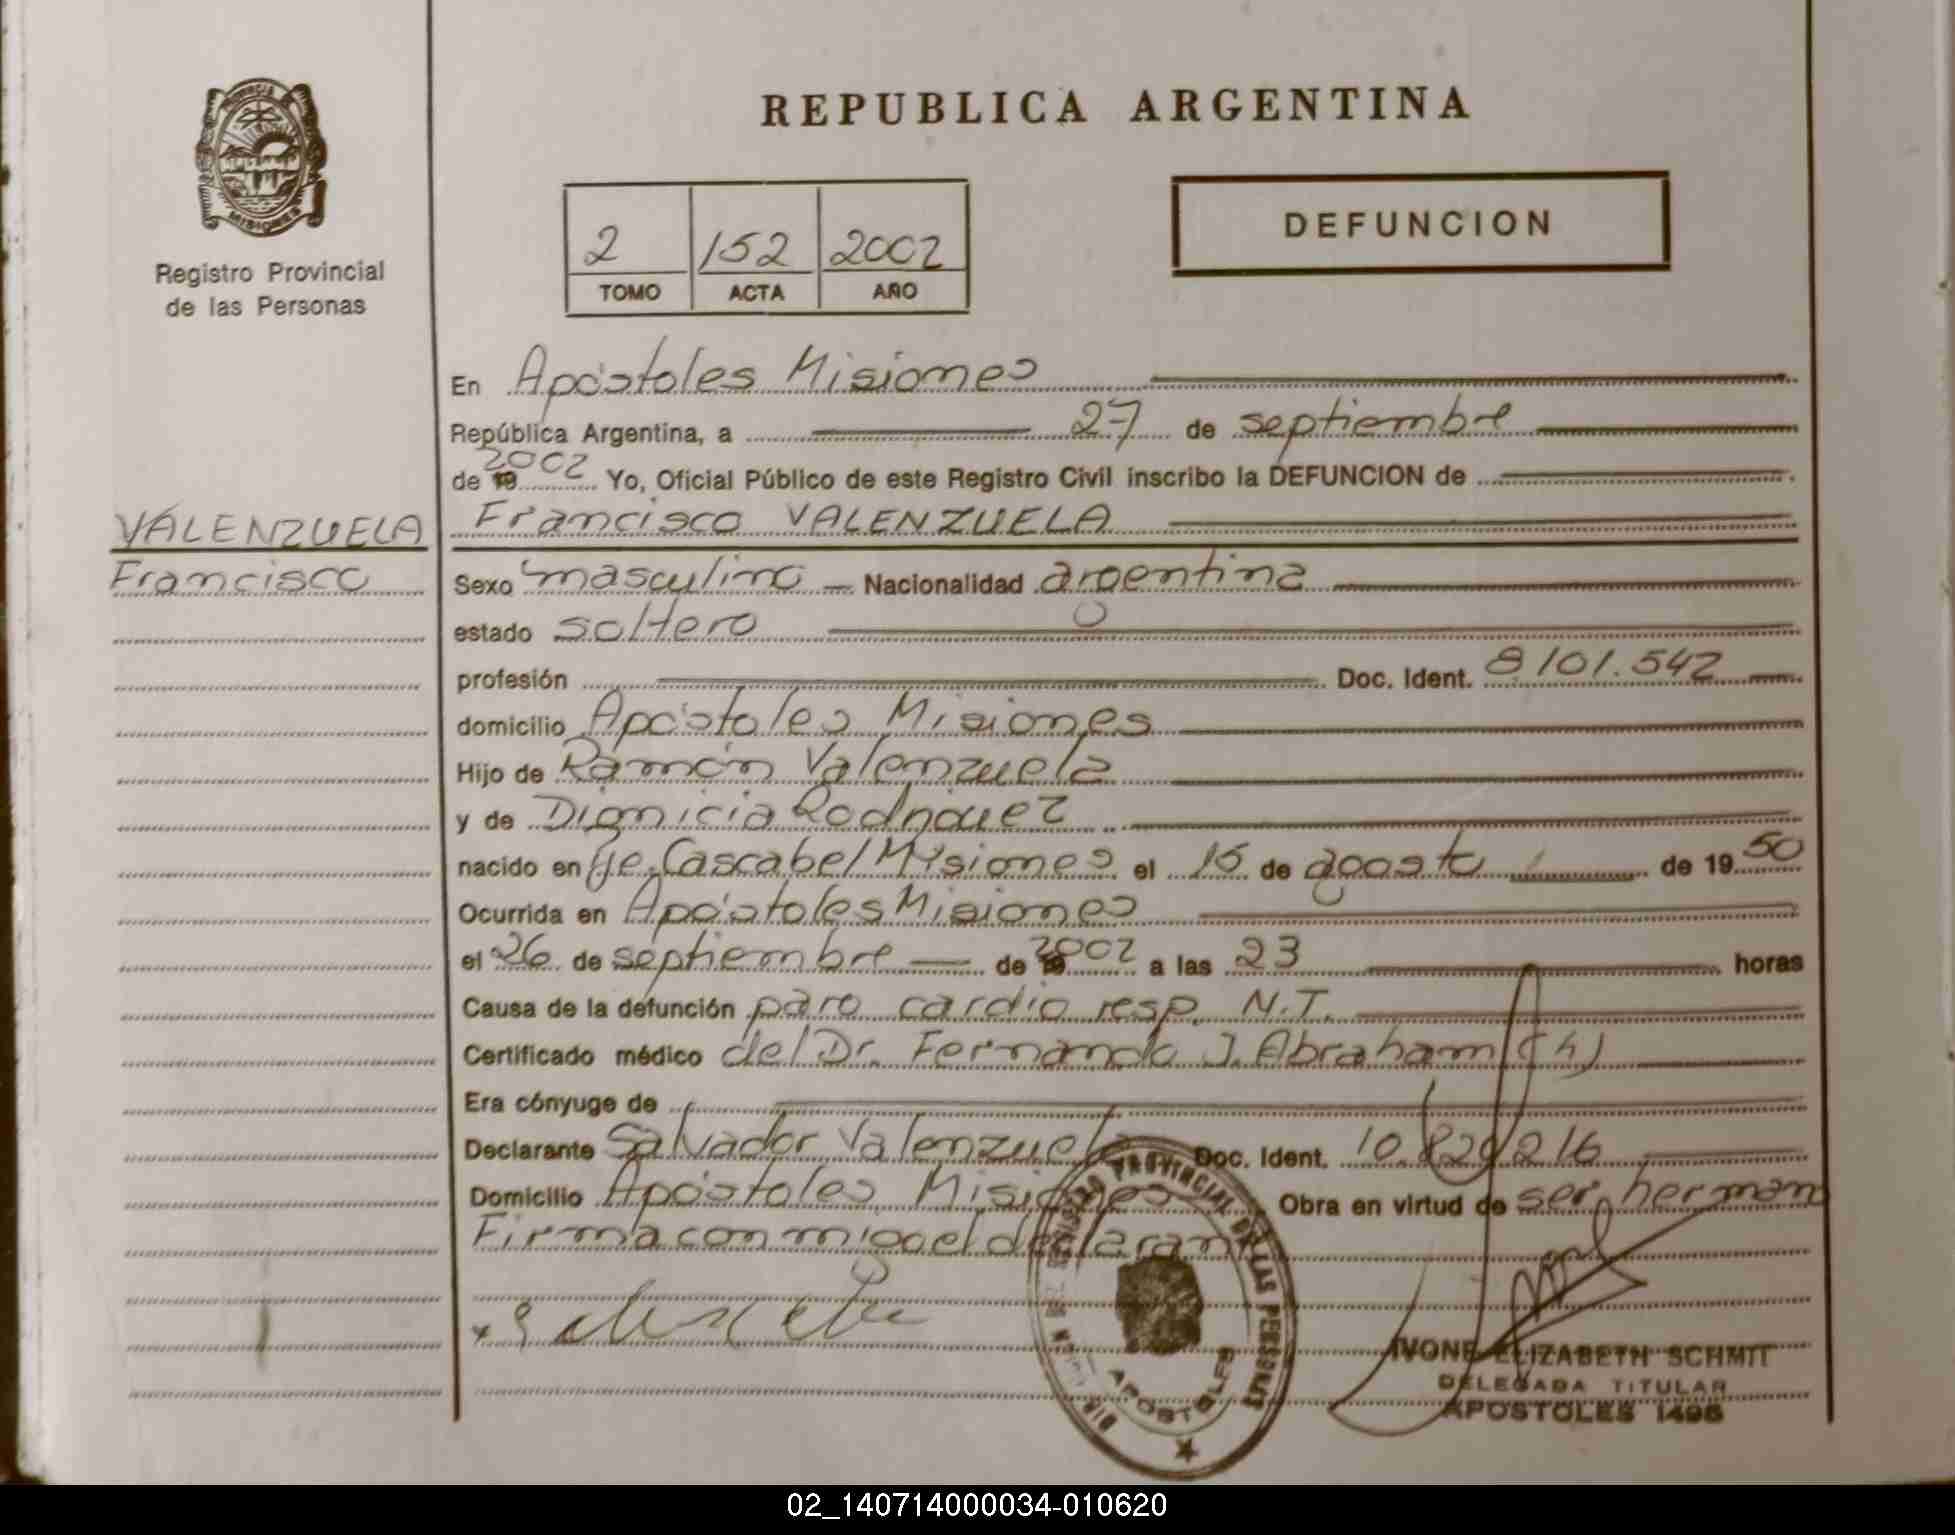 PROVINCIA DE
MISIONES
Registro Provincial
de las Personas
REPUBLICA ARGENTINA
2 152 2002
TOMO ACTA AÑO
DEFUNCION
En Apóstoles Misiones
República Argentina, a 27 de septiembre
de 19 2002 Yo, Oficial Público de este Registro Civil inscribo la DEFUNCION de
Francisco VALENZUELA
VALENZUELA
Francisco
Sexo masculino Nacionalidad argentina
estado soltero
profesión Doc. Ident. 8101.542
domicilio Apóstoles Misiones
Hijo de Ramón Valenzuela
y de Dionicia Rodriguez
nacido en Cascabel Misiones el 15 de agosto de 1950
Ocurrida en Apóstoles Misiones
el 26 de septiembre de 19 2002 a las 23 horas
Causa de la defunción paro cardio resp. N.T.
Certificado médico del Dr. Fernando J. Abraham (h)
Era cónyuge de
Declarante Salvador Valenzuela Doc. Ident. 10.829216
Domicilio Apóstoles Misiones Obra en virtud de ser hermano
Firma con migo el declarante
REGISTRO PROVINCIAL DE LAS PERSONAS
APOSTOLES
IVONE ELIZABETH SCHMIT
DELEGADA TITULAR
APOSTOLES 1496
02_140714000034-010620